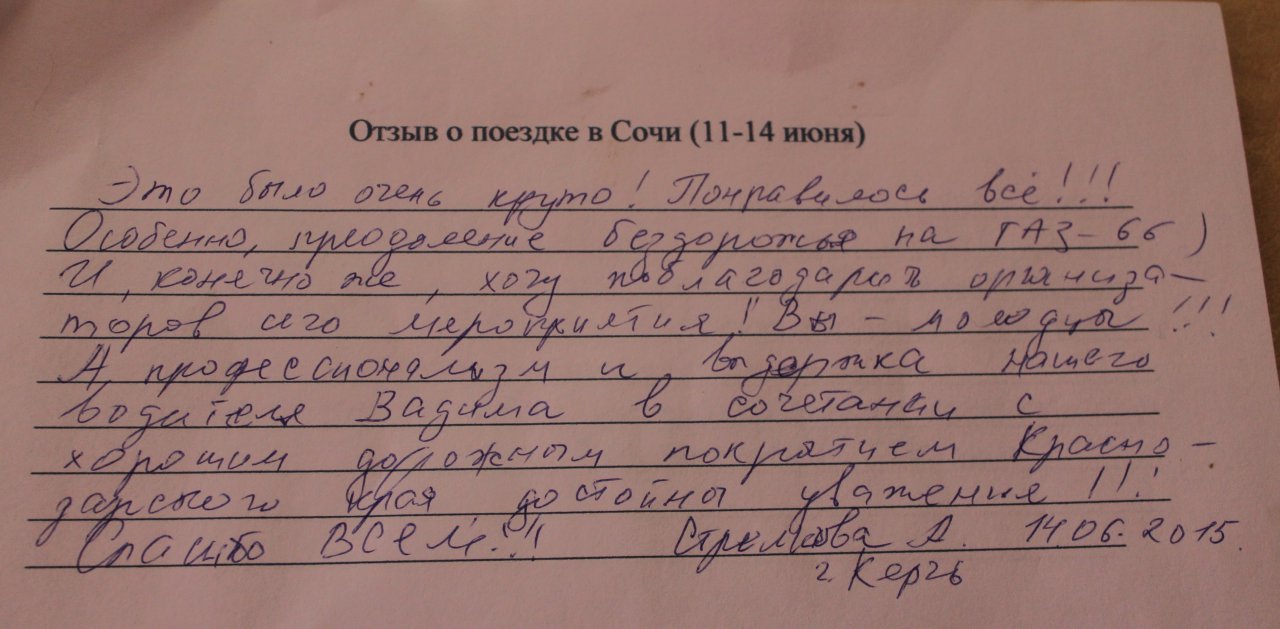 Отзыв о поездке в Сочи (11-14 июня)
Это было очень круто! Понравилось всё!!!
Особенно, преодоление бездорожья на ГАЗ-66)
И, конечно же, хочу поблагодарить организа-
торов сего мероприятия! Вы - молодцы!!!
А профессионализм и выдержка нашего
водителя Вадима в сочетании с
хорошим дорожным покрытием Красно-
дарского края достойны уважения!!!
Спасибо ВСЕМ!!! Стрелкова А. 14.06.2015.
г. Керчь